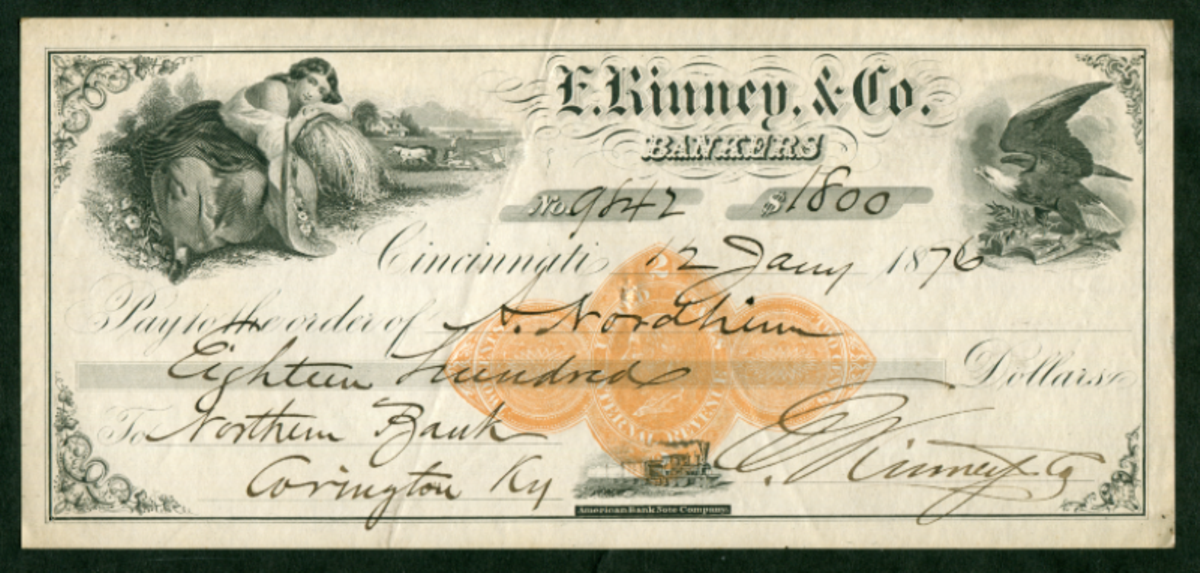 E. Kinney, & Co.
BANKERS
No. 9842 $1800
Cincinnati, 12 Jany 1876
Pay to the order of A. Nordheim
Eighteen Hundred Dollars
To Northern Bank
Covington Ky
E Kinney & Co
2
INTERNAL REVENUE
American Bank Note Company.